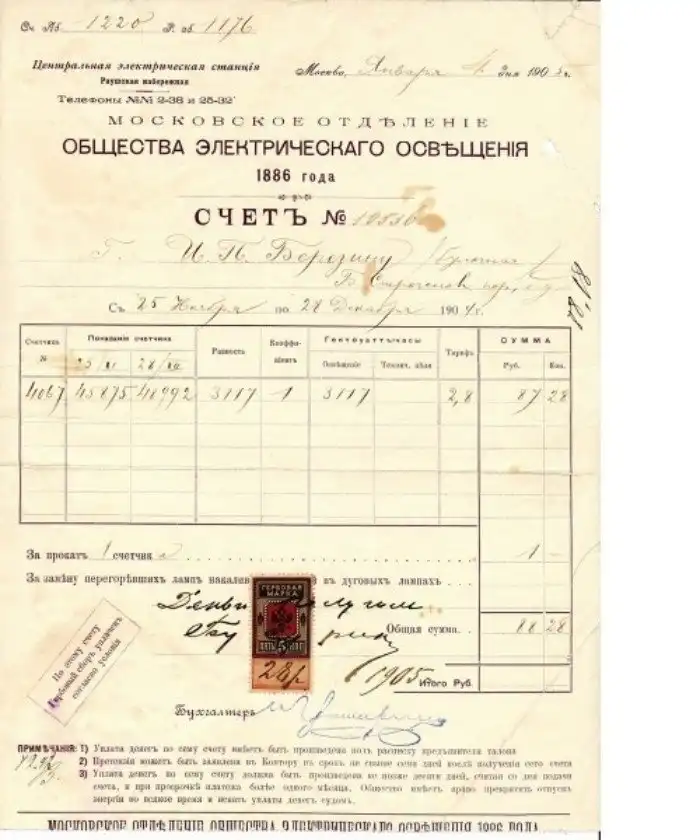 Сч. Аб. 1220 Р. об. 1176
Центральная электрическая станція
Раушская набережная
Телефоны №№ 2-36 и 25-32
Москва, Января 4 дня 1905 г.
МОСКОВСКОЕ ОТДѢЛЕНІЕ
ОБЩЕСТВА ЭЛЕКТРИЧЕСКАГО ОСВѢЩЕНІЯ
1886 года
СЧЕТЪ №
Г. И. П. Березину
Съ 25 Ноября по 28 Декабря 1904 г.
87.18
Счетчикъ № Показанія счетчика Разность Коэффи-ціентъ Гектоуаттъ-часы Тарифъ СУММА
25/XI 28/XII Освѣщеніе Технич. цѣли Руб. Коп.
4067 45875 48992 3117 1 3117 2,8 87 28
За прокатъ 1 счетчика 1 —
За замѣну перегорѣвшихъ лампъ накалив въ дуговыхъ лампахъ
Деньги получилъ
ГЕРБОВАЯ МАРКА
ПЯТЬ 5 КОП
Общая сумма 88 28
28 р. 1905
Итого Руб.
По этому счету
Гербовый сборъ уплаченъ
согласно условія
Бухгалтеръ
ПРИМѢЧАНІЯ: 1) Уплата денегъ по сему счету имѣетъ быть произведена подъ расписку предъявителя талона
2) Претензіи можетъ быть заявлена въ Контору въ срокъ не свыше семи дней послѣ полученія сего счета
3) Уплата денегъ по сему счету должна быть произведена не позже десяти дней, считая со дня подачи
счета, и при просрочкѣ платежа болѣе одного мѣсяца. Общество имѣетъ право прекратить отпускъ
энергіи во всякое время и искать уплаты денегъ судомъ.
МОСКОВСКОЕ ОТДѢЛЕНІЕ ОБЩЕСТВА ЭЛЕКТРИЧЕСКАГО ОСВѢЩЕНІЯ 1886 ГОДА